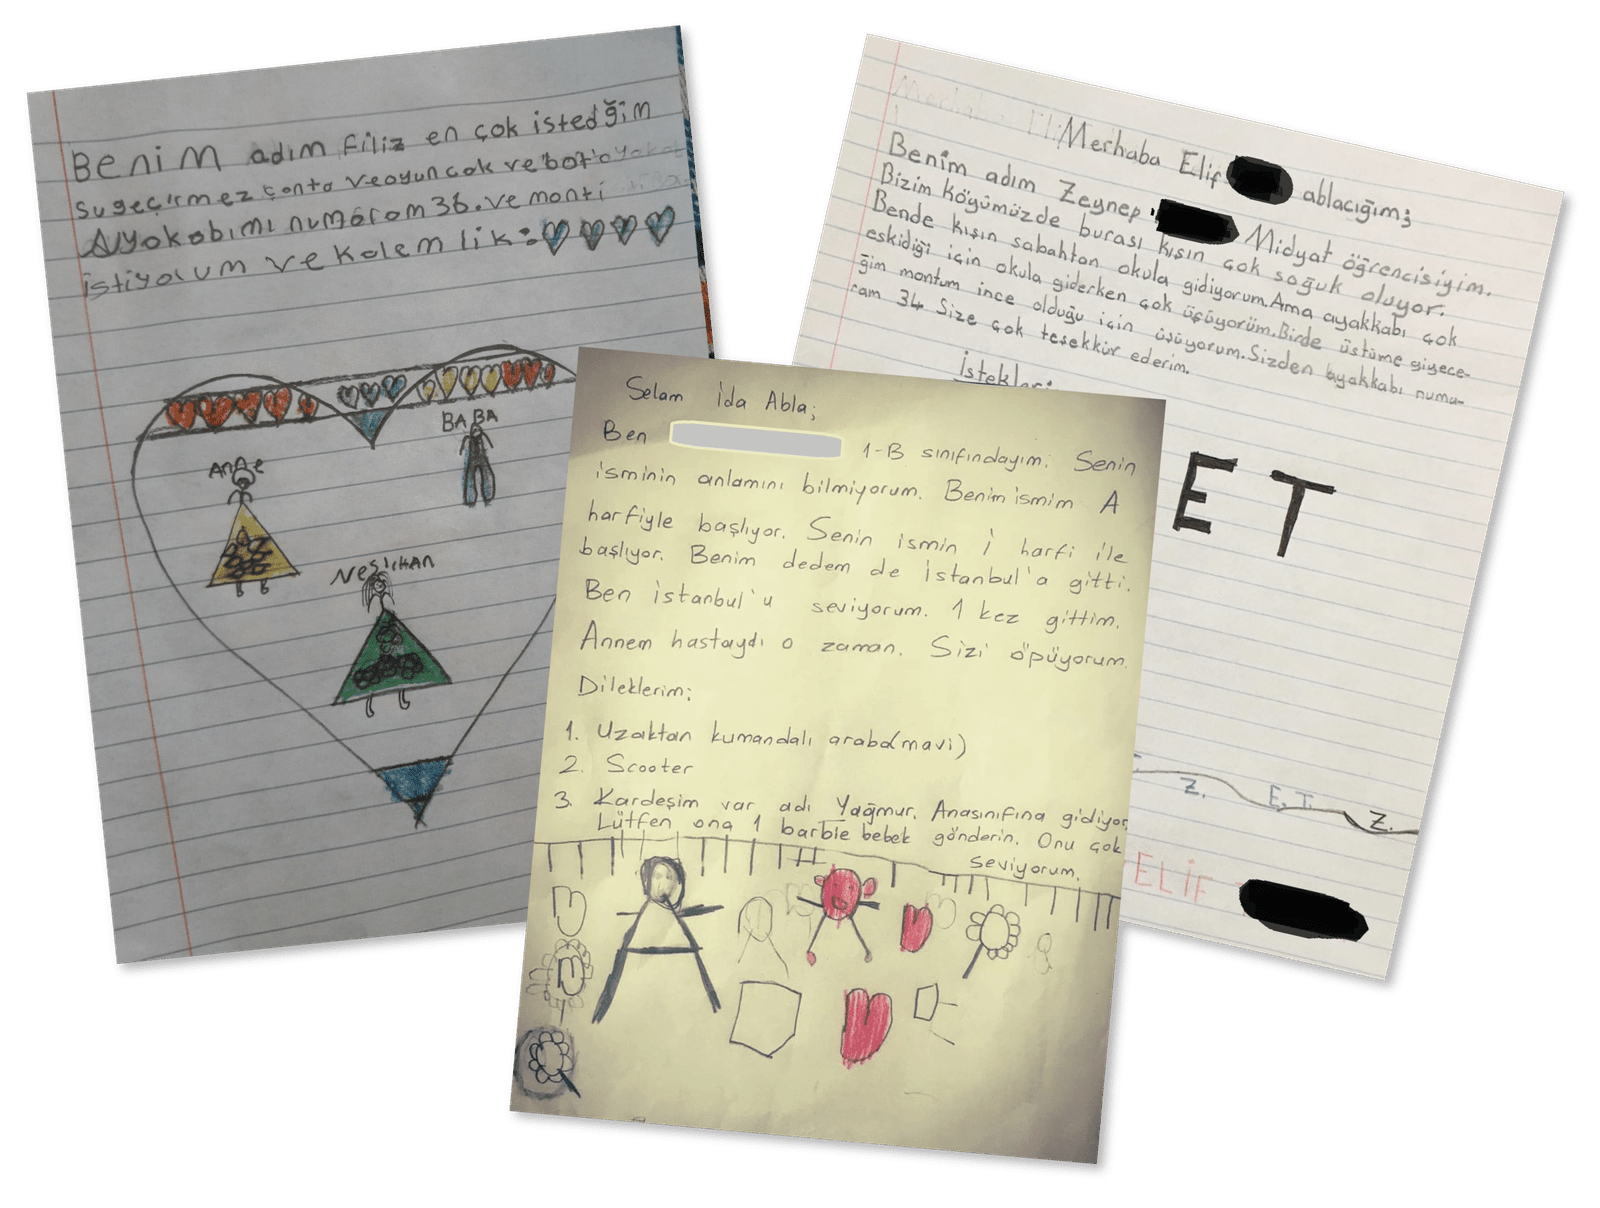 Benim adım filiz en çok istedğim
sugeçirmez çanta veoyuncak ve bot
Ayakabımı numaram 36. ve monti
istiyorum ve kalemlik:
ANNE
BABA
NesliHAN
Merhaba Elif ablacığım;
Benim adım Zeynep Midyat öğrencisiyim.
Bizim köyümüzde burası kışın çok soğuk oluyor.
Bende kışın sabahtan okula gidiyorum. Ama ayakkabı çok
eskidiği için okula giderken çok üşüyorüm. Birde üstüme giyece-
ğim montum ince olduğu için üşüyorum. Sizden ayakkabı numa-
ram 34 Size çok teşekkür ederim.
İstekleri
ET
Z.
E.T.
Z.
ELİF
Selam İda Abla;
Ben 1-B sınıfındayım. Senin
isminin anlamını bilmiyorum. Benim ismim A
harfiyle başlıyor. Senin ismin İ harfi ile
başlıyor. Benim dedem de İstanbul'a gitti.
Ben İstanbul'u seviyorum. 1 kez gittim.
Annem hastaydı o zaman. Sizi öpüyorum.
Dileklerim:
1. Uzaktan kumandalı araba(mavi)
2. Scooter
3. Kardeşim var adı Yağmur. Anasınıfına gidiyor.
Lütfen ona 1 barbie bebek gönderin. Onu çok
seviyorum.